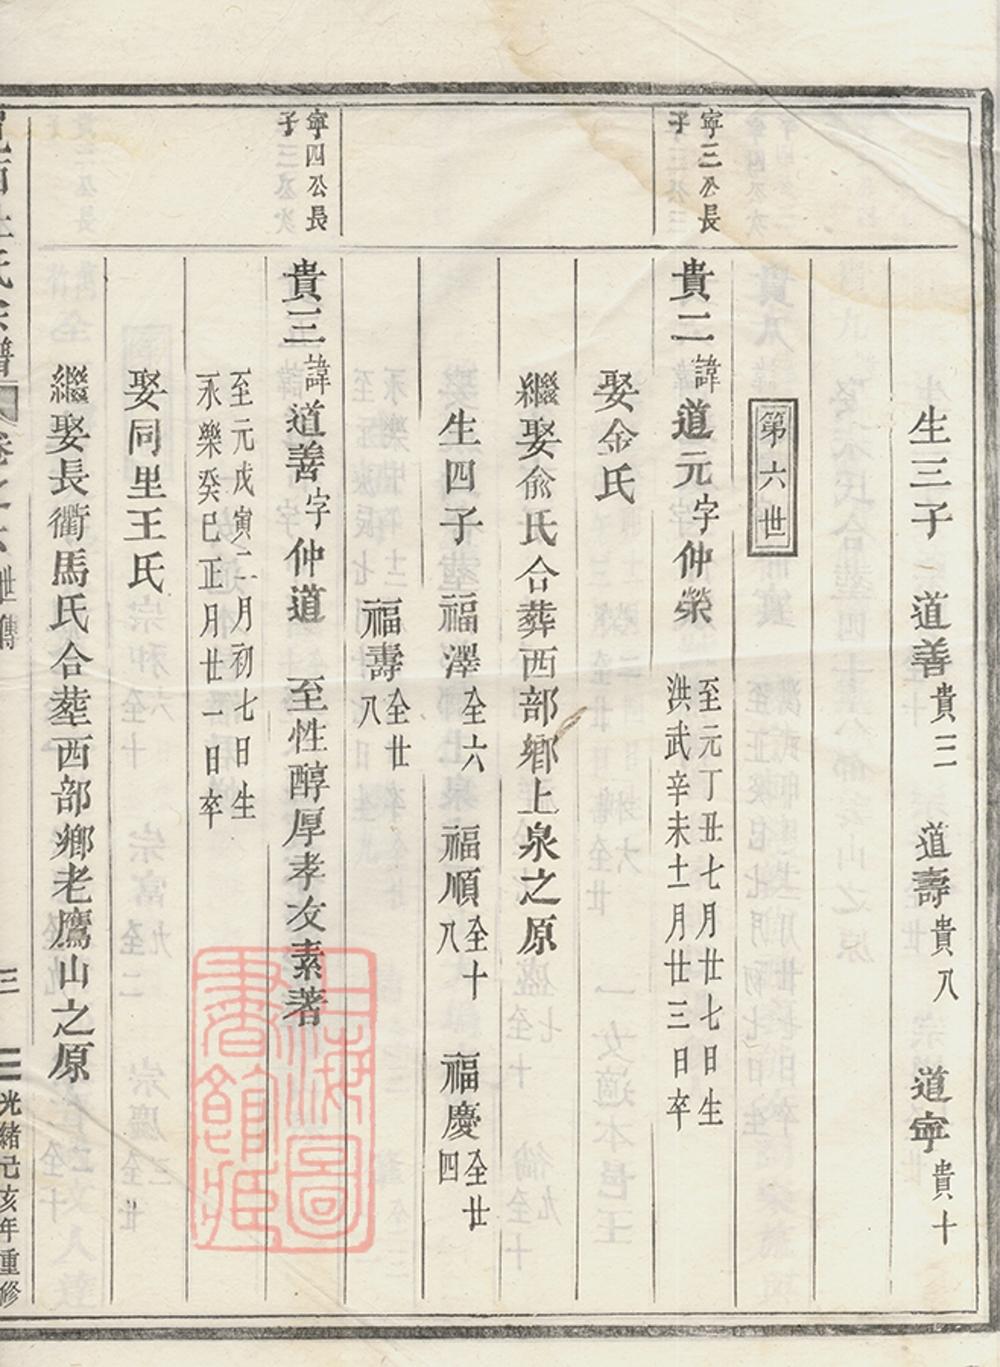 生三子 道善貴三 道壽貴八 道寧貴十
第六世
寧三公長子
貴二諱道元字仲榮 至元丁丑七月廿七日生
洪武辛未十一月廿三日卒
娶金氏
繼娶俞氏合葬西部鄉上泉之原
生四子 福澤全六 福順全十八 福慶全廿四
福壽全廿八
寧四公長子
貴三諱道善字仲道 至性醇厚孝友素著
至元戊寅二月初七日生
永樂癸巳正月廿一日卒
娶同里王氏
繼娶長衢馬氏合葬西部鄉老鷹山之原
氏宗譜 卷之六 世傳 三 光緒己亥年重修
上海圖書館藏